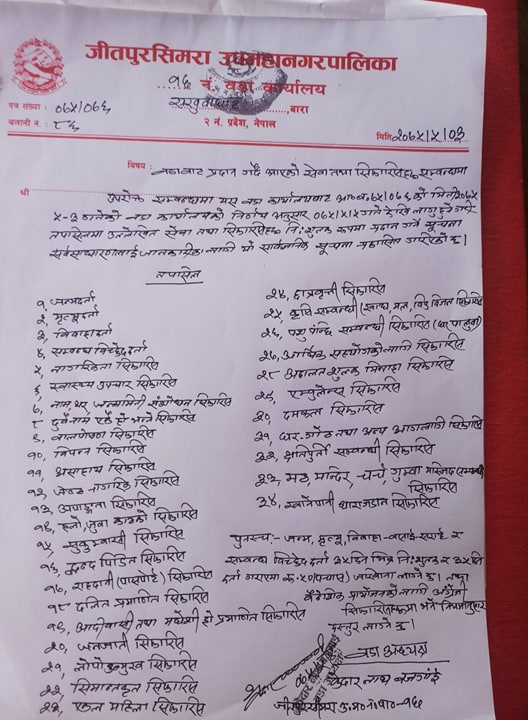 जीतपुरसिमरा उपमहानगरपालिका
१६ नं. वडा कार्यालय
बारा
२ नं. प्रदेश, नेपाल
पत्र संख्या : ०७५/०७६
चलानी नं. : ८६
मिति २०७५/५/०३
विषय : वडाबाट प्रदान गर्दै आएको सेवा तथा सिफारिसहरू सम्बन्धमा
श्री
उपरोक्त सम्बन्धमा यस वडा कार्यालयबाट आ०ब००७५/०७६ को मिति २०७५
५-३ गतेको वडा कार्यालयको निर्णय अनुसार ०७५/५/५ गते देखि लागु हुने गरि
तपसिलमा उल्लेखित सेवा तथा सिफारिसहरू नि:शुल्क रूपमा प्रदान गर्ने सूचना
सर्वसाधारणलाई जानकारीको लागी यो सार्वजनिक सूचना प्रकाशित गरिएको छ।
तपसिल
१, जन्मदर्ता
२, मृत्युदर्ता
३, विवाहदर्ता
४, सम्बन्ध विच्छेद दर्ता
५, नागरिकता सिफारिस
६, स्वास्थ्य उपचार सिफारिस
७, नाम, थर, जन्ममिति संशोधन सिफारिस
८ दुवै नाम एकै हो भन्ने सिफारिस
९, सिफारिस
१०, विपन्न सिफारिस
११, असहाय सिफारिस
१२, जेष्ठ नागरिक सिफारिस
१३, अपाङ्गता सिफारिस
१४, हलो, जुवा काठको सिफारिस
१५, सुकुम्वासी सिफारिस
१६, द्वन्द पिडित सिफारिस
१७, राहदानी (पासपोर्ट) सिफारिस
१८ दलित प्रमाणित सिफारिस
१९, आदीवासी तथा मधेशी हो प्रमाणित सिफारिस
२०, जनजाती सिफारिस
२१, लोपोन्मुख सिफारिस
२२, सिमान्तकृत सिफारिस
२३, एकल महिला सिफारिस
२४, छात्रवृत्ती सिफारिस
२५ कृषि सम्बन्धी (खाद्य, मल, विउ विजन सिफारिस
२६, पशु पन्छि सम्बन्धी सिफारिस
२७, आर्थिक सहयोगको लागि सिफारिस
२८ अदालत शुल्क मिनाहा सिफारिस
२९, एम्बुलेन्स सिफारिस
३०, दमकल सिफारिस
३१, घर-गोठ तथा अन्य आगलागी सिफारिस
३२, क्षतिपुर्ती सम्बन्धी सिफारिस
३३, मठ, मन्दिर, चर्च, गुम्वा मस्जिद सम्बन्धी
सिफारिस
३४, खानेपानी धारा जडान सिफारिस
पुनश्च:- जन्म, मृत्यू, विवाह-बसाई-सराई र
सम्बन्ध विच्छेद दर्ता ३५ दिन भित्र नि:शुल्क र ३५ दिन
दर्ता गराएमा रू.५०(पचास) जरिवाना लाग्ने छ। तथा
वैदेशिक प्रयोजनको लागी अंग्रेजी
सिफारिसहरूमा भने नियमानुसार
दस्तुर लाग्ने छ।
वडा अध्यक्ष
जीतपुरसिमरा उ.म.न.पा०-१६